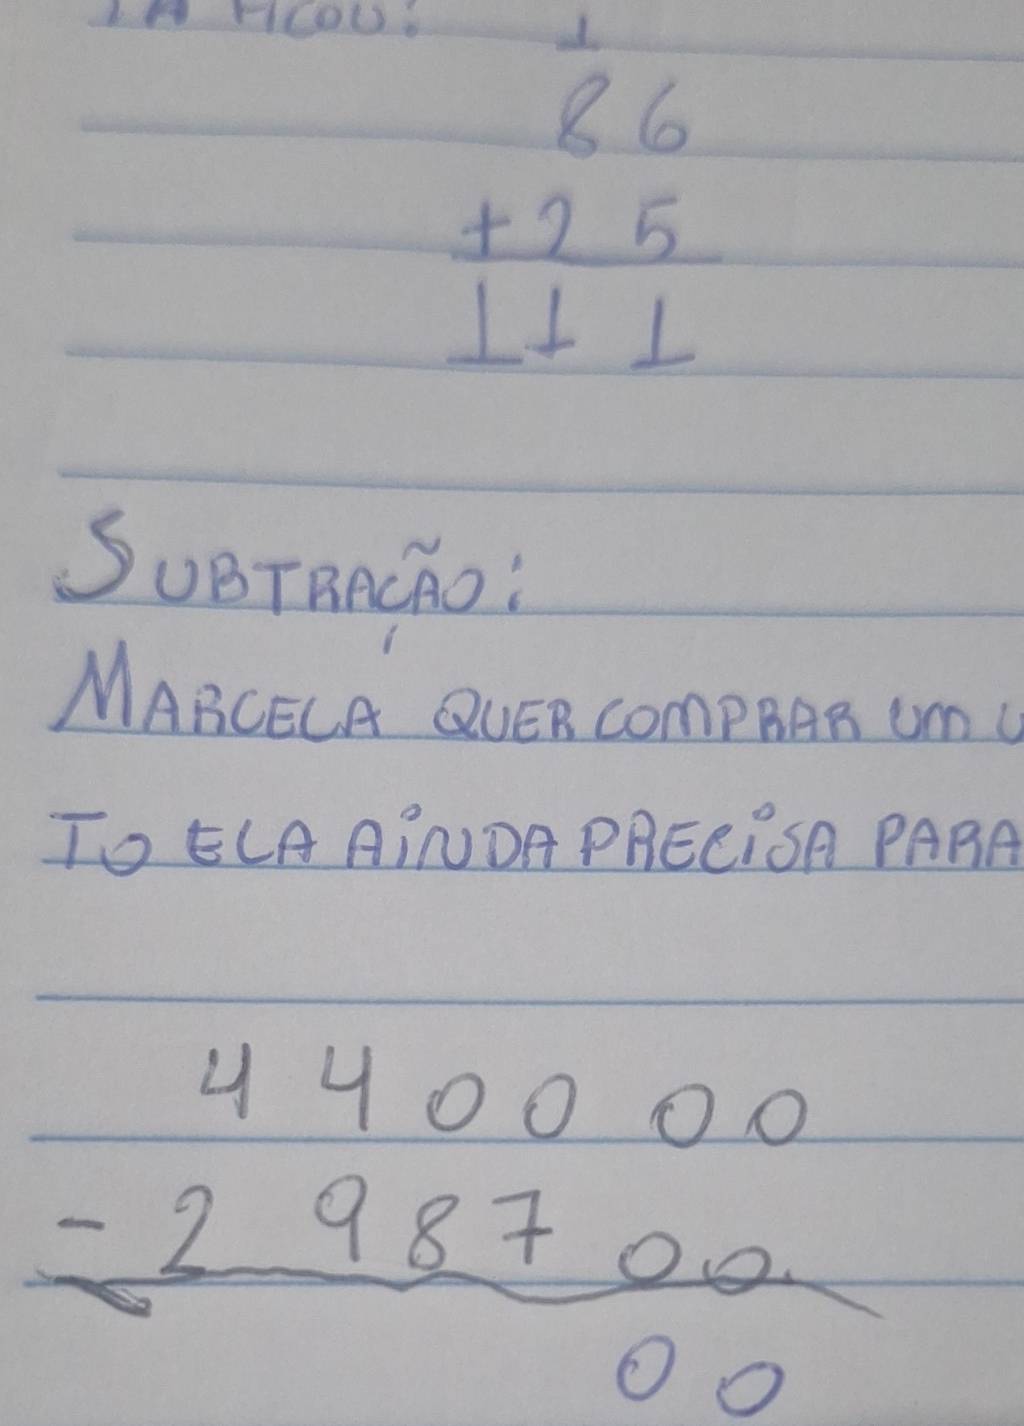 FICOU:
1
86
+25
111
SUBTRAÇÃO:
MARCELA QUER COMPRAR UM
TO ELA AINDA PRECISA PARA
440000
-298700
00